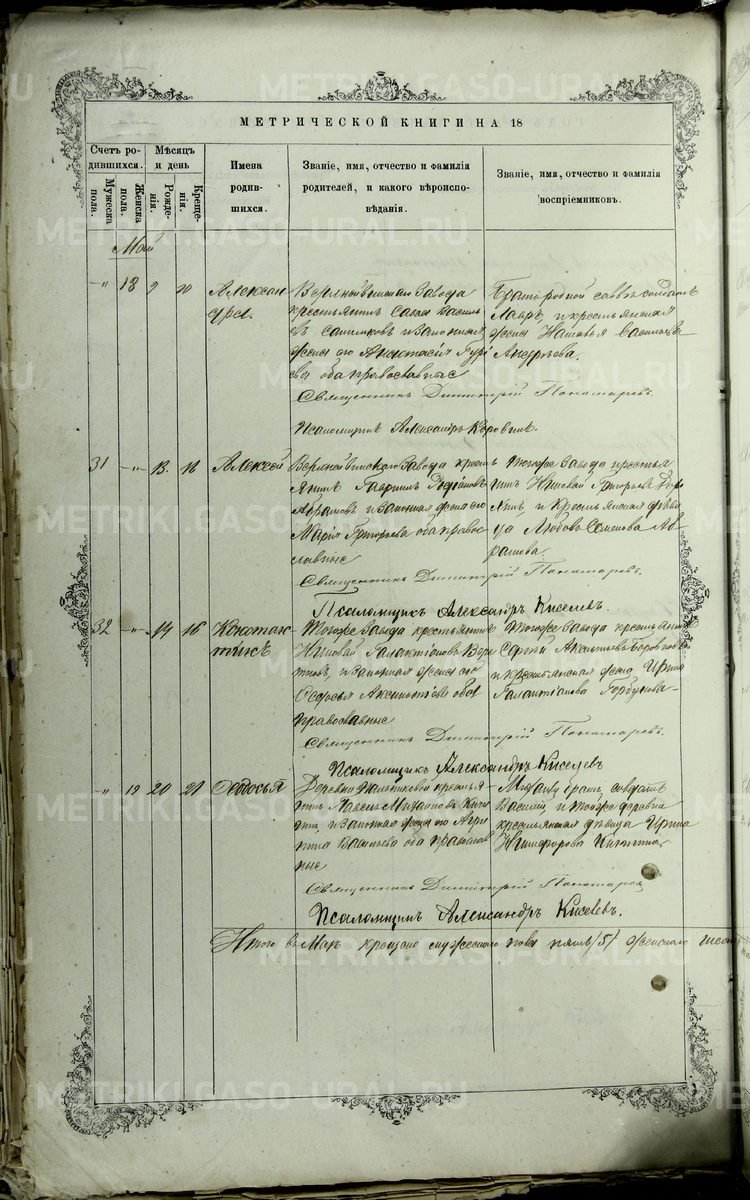 МЕТРИЧЕСКОЙ КНИГИ НА 18
Счетъ ро-
дившихся.
Мѣсяцъ
и день
Мужеска
пола.
Женска
пола.
Рожде-
нія.
Креще-
нія.
Имена
родив-
шихся.
Званіе, имя, отчество и фамилія
родителей, и какого вѣроиспо-
вѣданія.
Званіе, имя, отчество и фамилія
воспріемниковъ.
Май
18 9 10 Александра.
Завода
крестьянинъ Савва Василь
евъ и законная
жена его Анастасія
ева оба православные
Братъ родной Саввы солдатъ
Лавръ, и крестьянская
жена Наталья Васильева
Андреева.
Священникъ Димитрій Пономаревъ.
Псаломщикъ Александръ Киселевъ.
31 13 16 Алексѣй
Завода крестьянинъ Гавріилъ Родіоновъ
Абрамовъ и законная жена его
Марія Григорьева оба православные
Тогоже Завода крестьянинъ Григорьевъ
и крестьянская дѣвица Любовь Семенова
Абрамова.
Священникъ Димитрій Пономаревъ.
Псаломщикъ Александръ Киселевъ.
32 14 16 Константинъ
Тогоже Завода крестьянинъ
Галактіоновъ
и законная жена его
Федосья Аксентьева оба
православные
Тогоже Завода крестьянинъ
Сергій Аксентьевъ
и крестьянская жена Ирина
Галактіонова Горбунова
Священникъ Димитрій Пономаревъ.
Псаломщикъ Александръ Киселевъ
19 20 21 Федосья
Деревни крестьянинъ
Алексѣй Михайловъ
и законная жена его Агриппина
Васильева оба православные
братъ, солдатъ
Василій, и тоже деревни
крестьянская дѣвица Ирина
Никифорова
Священникъ Димитрій Пономаревъ
Псаломщикъ Александръ Киселевъ.
Итого въ Маѣ крещено мужескаго пола пять /5/ женскаго
METRIKI.GASO-URAL.RU